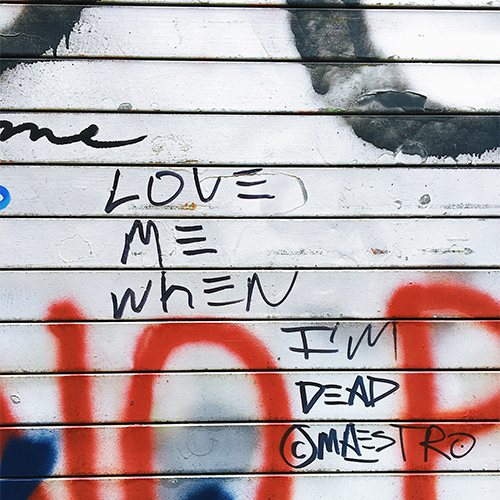 me
LOVE
ME
WhEN
I'M
DEAD
©MAESTRO